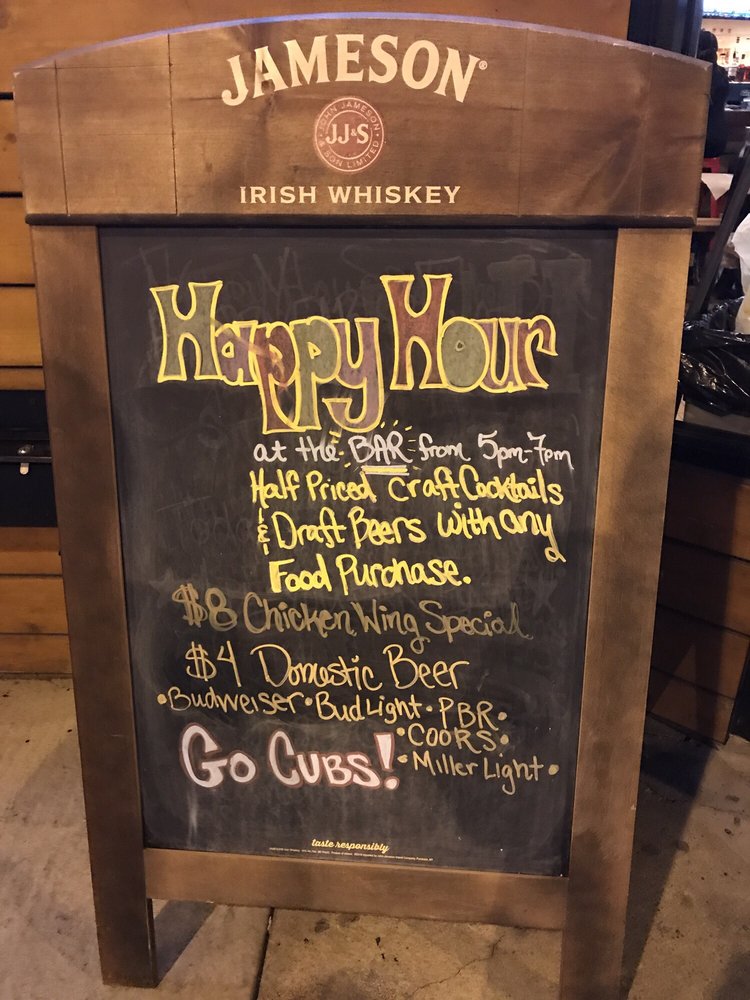 JAMESON®
JOHN JAMESON
JJ&S
& SON LIMITED
IRISH WHISKEY
Happy Hour
at the BAR from 5pm-7pm
Half Priced Craft Cocktails
& Draft Beers with any
Food Purchase.
$8 Chicken Wing Special
$4 Domestic Beer
•Budweiser•Bud Light•PBR•
•COORS•
•Miller Light•
Go Cubs!
taste responsibly